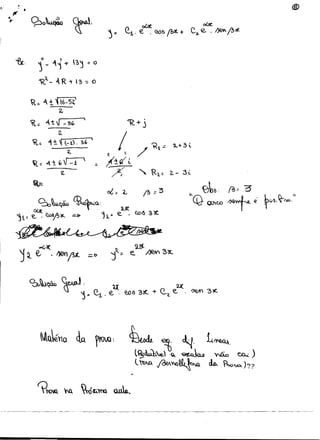 Solução Geral.
y = C₁. e^αx. cos βx + C₂ e^αx. sen βx
Ex: y'' - 4y' + 13y = 0
R² - 4R + 13 = 0
R = 4 ± √16-52 / 2
R = 4 ± √-36 / 2
R = 4 ± √(-1). 36 / 2
R = 4 ± 6√-1 / 2 = 4 ± 6i / 2
R₁ = 2+3i
R₂ = 2 - 3i
α = 2 β = 3
Obs. β = 3
"O arco sempre é positivo"
Solução Própria:
y₁ = e^αx. cos βx => y₁ = e^2x. cos 3x
y₂ e^αx. sen βx => y₂ = e^2x sen 3x
Solução Geral.
y = C₁. e^2x. cos 3x + C₂ e^2x. sen 3x
Matéria da prova: Desde eq. dif. Linear
não cai)
da Prova)??
Prova na Próxima aula.